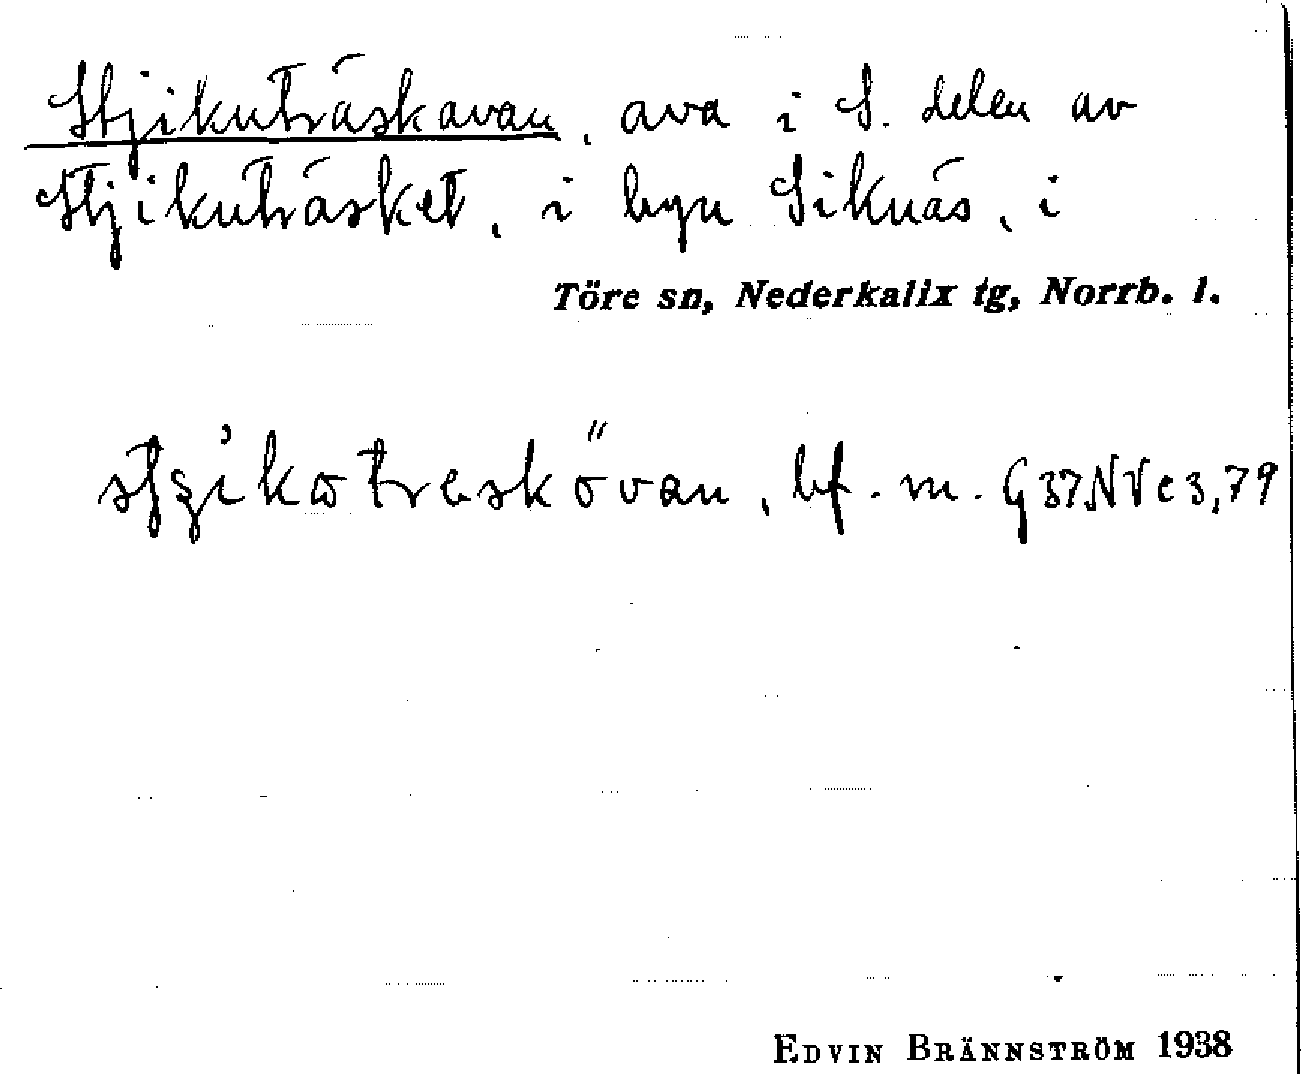 Stjikuträskavan, ava i S. delen av
Stjikuträsket, i byn Siknäs, i
Töre sn, Nederkalix tg, Norrb. l.
bf. m. G37NVc3,79
EDVIN BRÄNNSTRÖM 1938